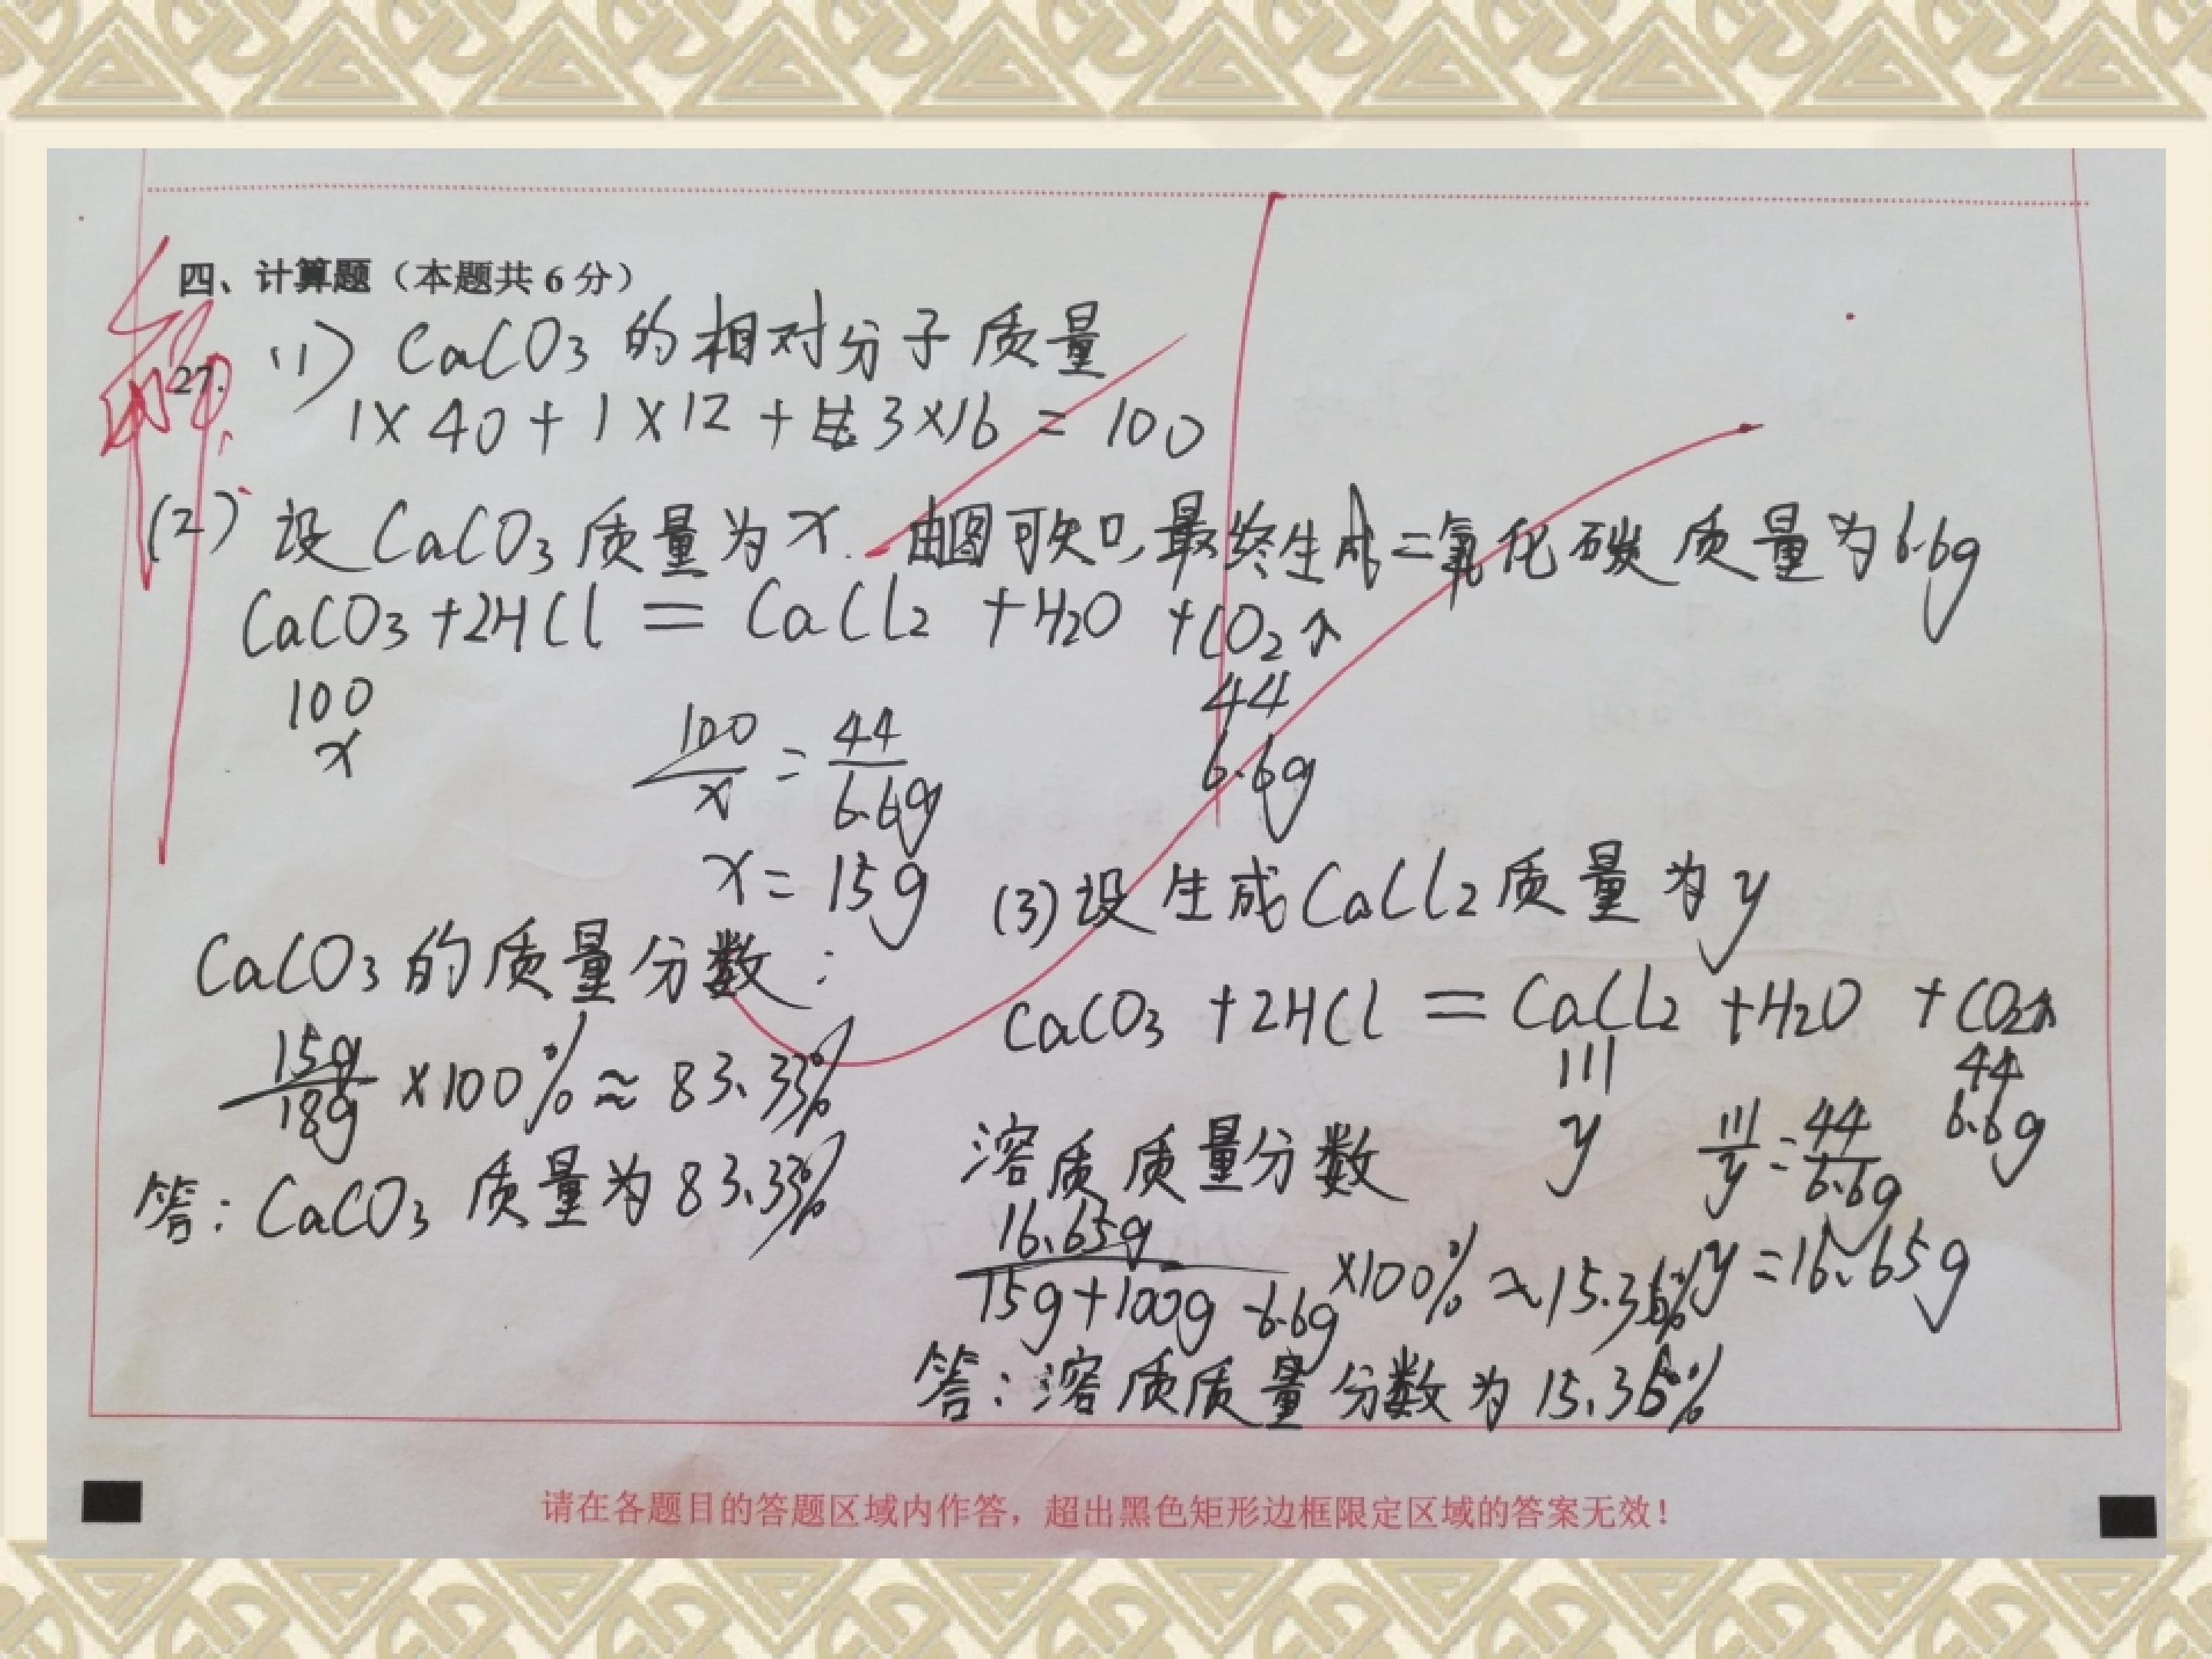 四、计算题（本题共 6 分）
解
27.
(1) CaCO3 的相对分子质量
1×40+1×12+3×16=100
(2) 设CaCO3质量为x. 由图可知,最终生成二氧化碳质量为6.6g
CaCO3+2HCl=CaCl2+H2O+CO2↑
100 44
x 6.6g
100/x=44/6.6g
x=15g
CaCO3的质量分数:
15g/18g×100%≈83.33%
答:CaCO3质量为83.33%
(3)设生成CaCl2质量为y
CaCO3+2HCl=CaCl2+H2O+CO2↑
111 44
y 6.6g
111/y=44/6.6g
y=16.65g
溶质质量分数
16.65g/15g+100g-6.6g×100%≈15.36%
答:溶质质量分数为15.36%
请在各题目的答题区域内作答，超出黑色矩形边框限定区域的答案无效！